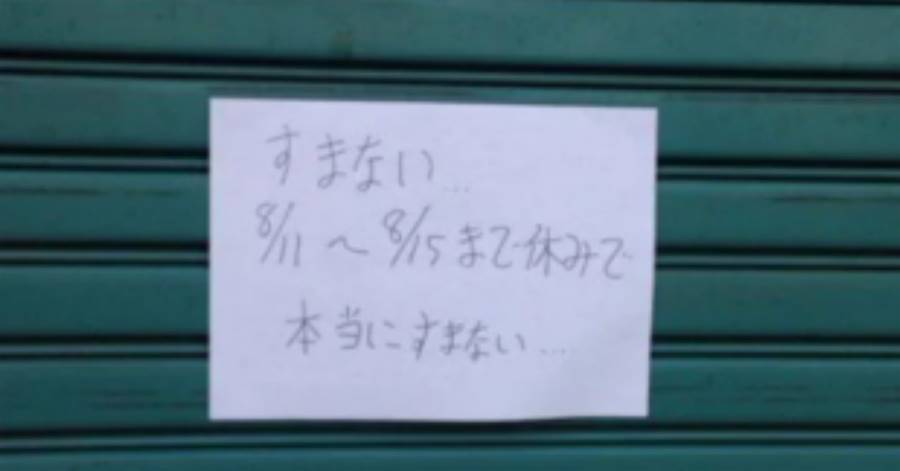 すまない...
8/11 〜 8/15 まで休みで
本当にすまない...